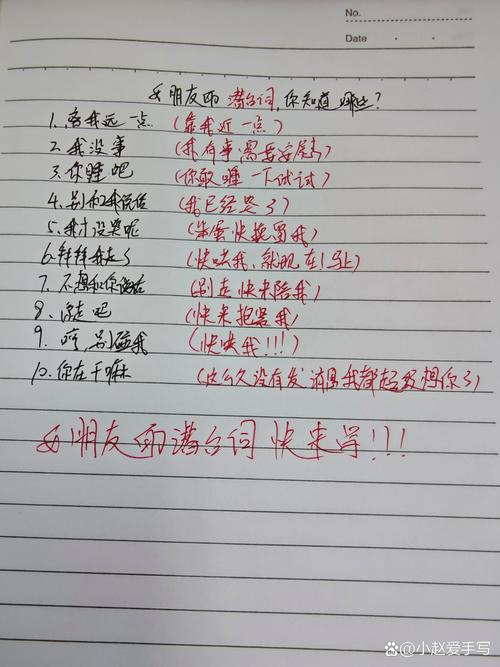 No.
Date
女朋友的潜台词,你知道哪些?
1. 离我远一点 (靠我近一点)
2. 我没事 (我有事,需要安慰)
3. 你睡吧 (你敢睡一下试试)
4. 别和我说话 (我已经哭了)
5. 我才没哭呢 (笨蛋快抱着我)
6. 拜拜我走了 (快哄我,就现在!马上)
7. 不想和你说话 (别走快来陪我)
8. 你走吧 (快来抱着我)
9. 哼,别碰我 (快哄我!!!)
10. 你在干嘛 (这么久没有发消息我都想你了)
女朋友的潜台词 快来学!!!
小赵爱手写